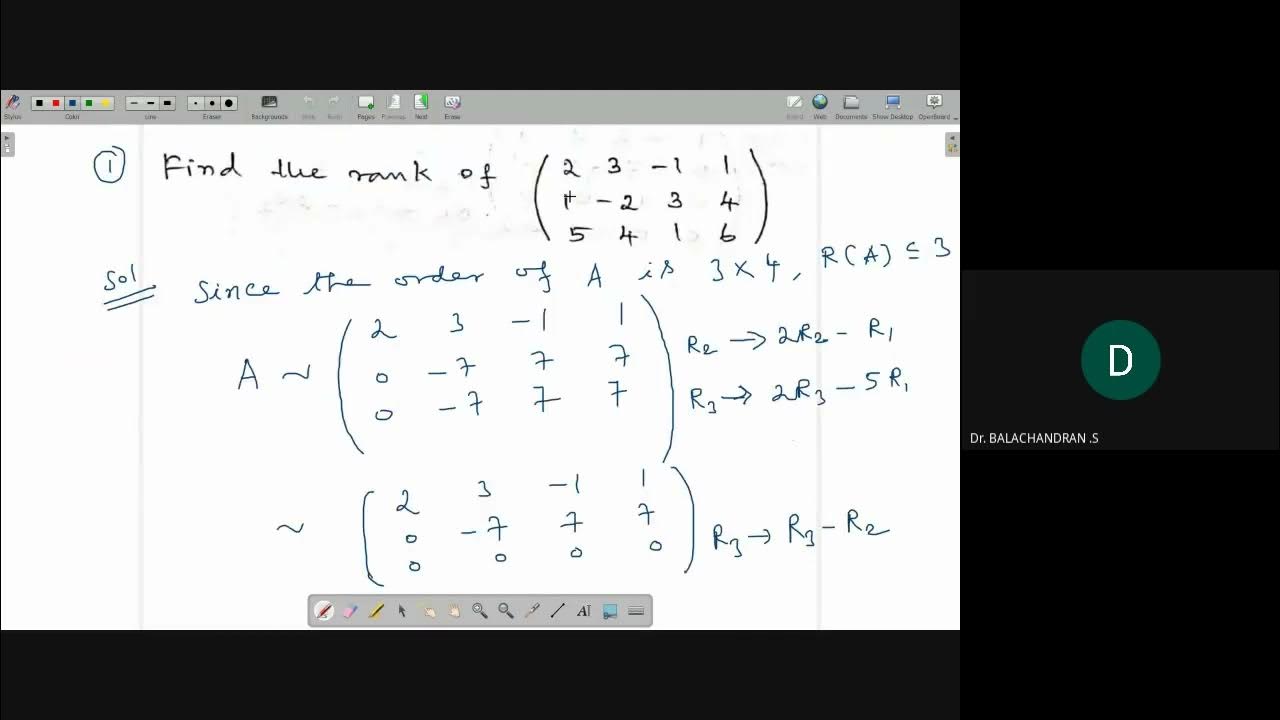 Stylus Color Line Eraser Backgrounds Undo Redo Pages Previous Next Erase Board Web Documents Show Desktop OpenBoard
① Find the rank of ( 2 3 -1 1
1 -2 3 4
5 4 1 6 )
Sol Since the order of A is 3 × 4, R(A) ≤ 3
A ~ ( 2 3 -1 1
0 -7 7 7 R₂ → 2R₂ - R₁
0 -7 7 7 ) R₃ → 2R₃ - 5R₁
~ ( 2 3 -1 1
0 -7 7 7
0 0 0 0 ) R₃ → R₃ - R₂
D
Dr. BALACHANDRAN .S